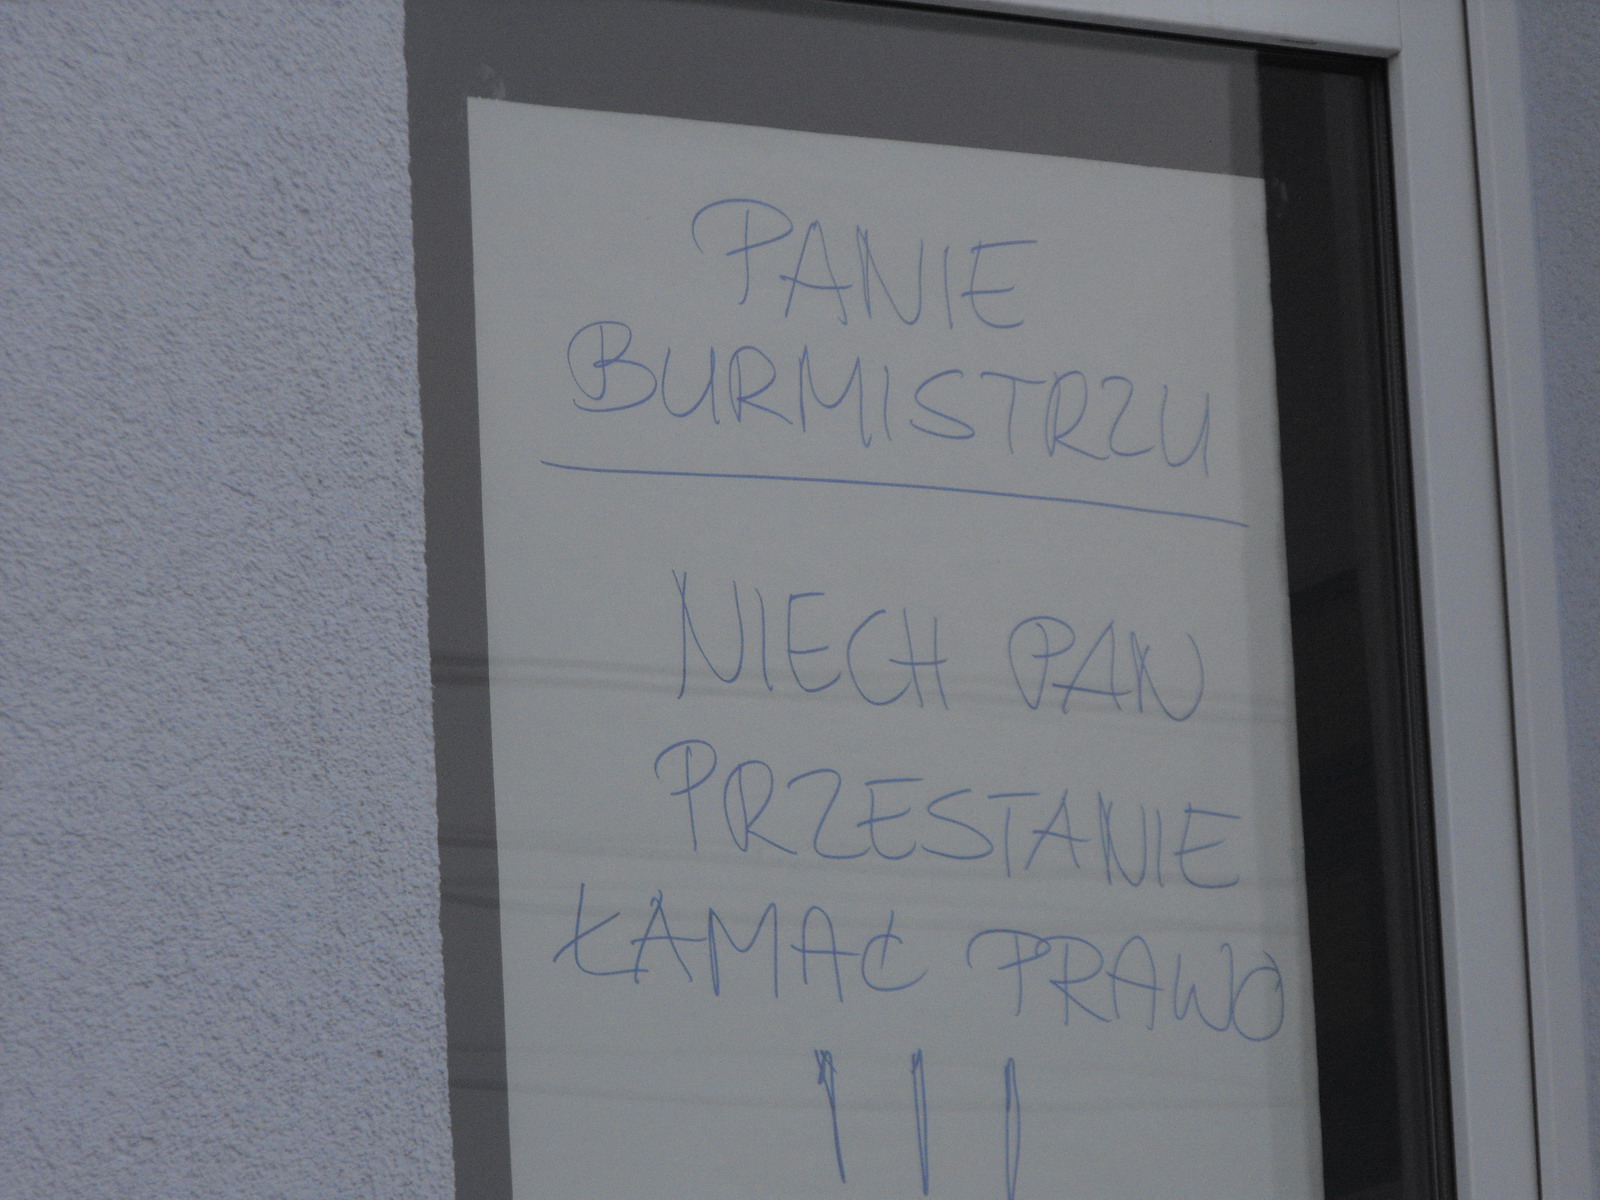 PANIE
BURMISTRZU
NIECH PAN
PRZESTANIE
ŁAMAĆ PRAWO
!!!